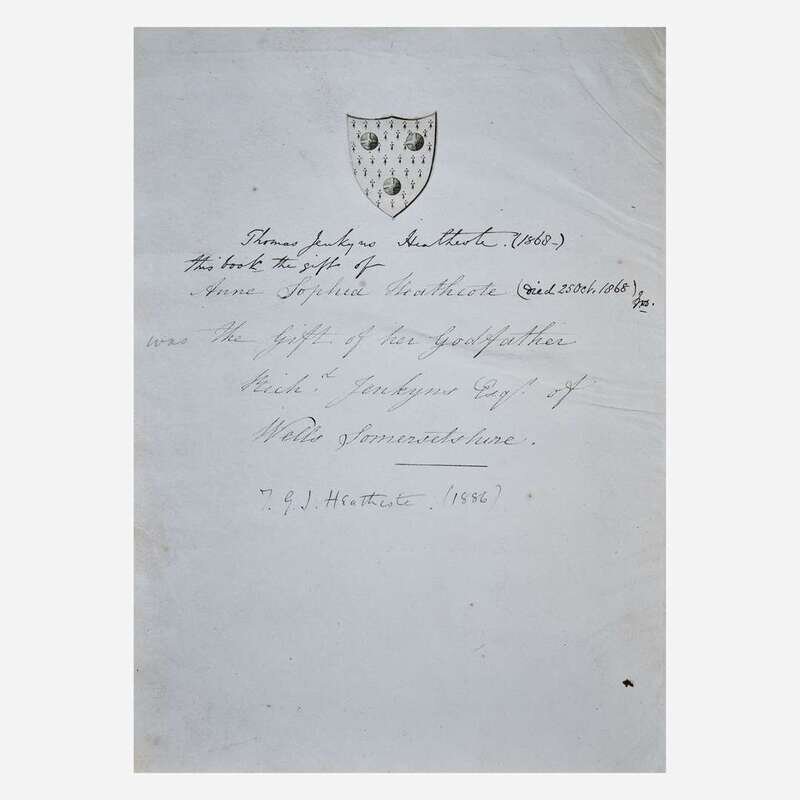 Thomas Jenkyns Heathcote. (1868-)
this book the gift of
Anne Sophia Heathcote (Died 25 Oct. 1868)
was the Gift of her Godfather
Rich.d Jenkyns Esqr. of
Wells Somersetshire.
T. G. J. Heathcote. (1886)